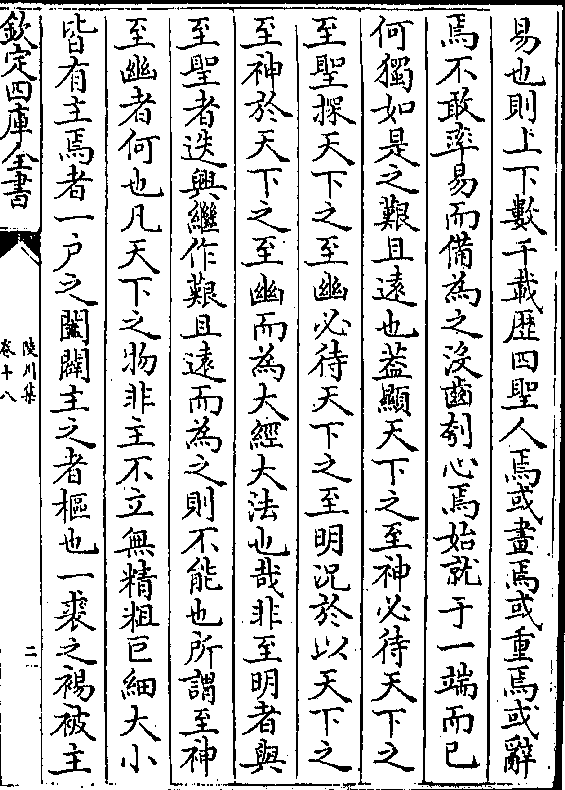 易也則上下數千載歴四聖人焉或畫焉或重焉或辭
焉不敢率易而備為之沒齒刳心焉始就于一端而已
何獨如是之艱且遠也葢顯天下之至神必待天下之
至聖探天下之至幽必待天下之至明况於以天下之
至神於天下之至幽而為大經大法也哉非至明者與
至聖者迭興繼作艱且遠而為之則不能也所謂至神
至幽者何也凡天下之物非主不立無精粗巨細大小
皆有主焉者一户之闔闢主之者樞也一裘之裼被主
欽定四庫全書
陵川集
卷十八
二